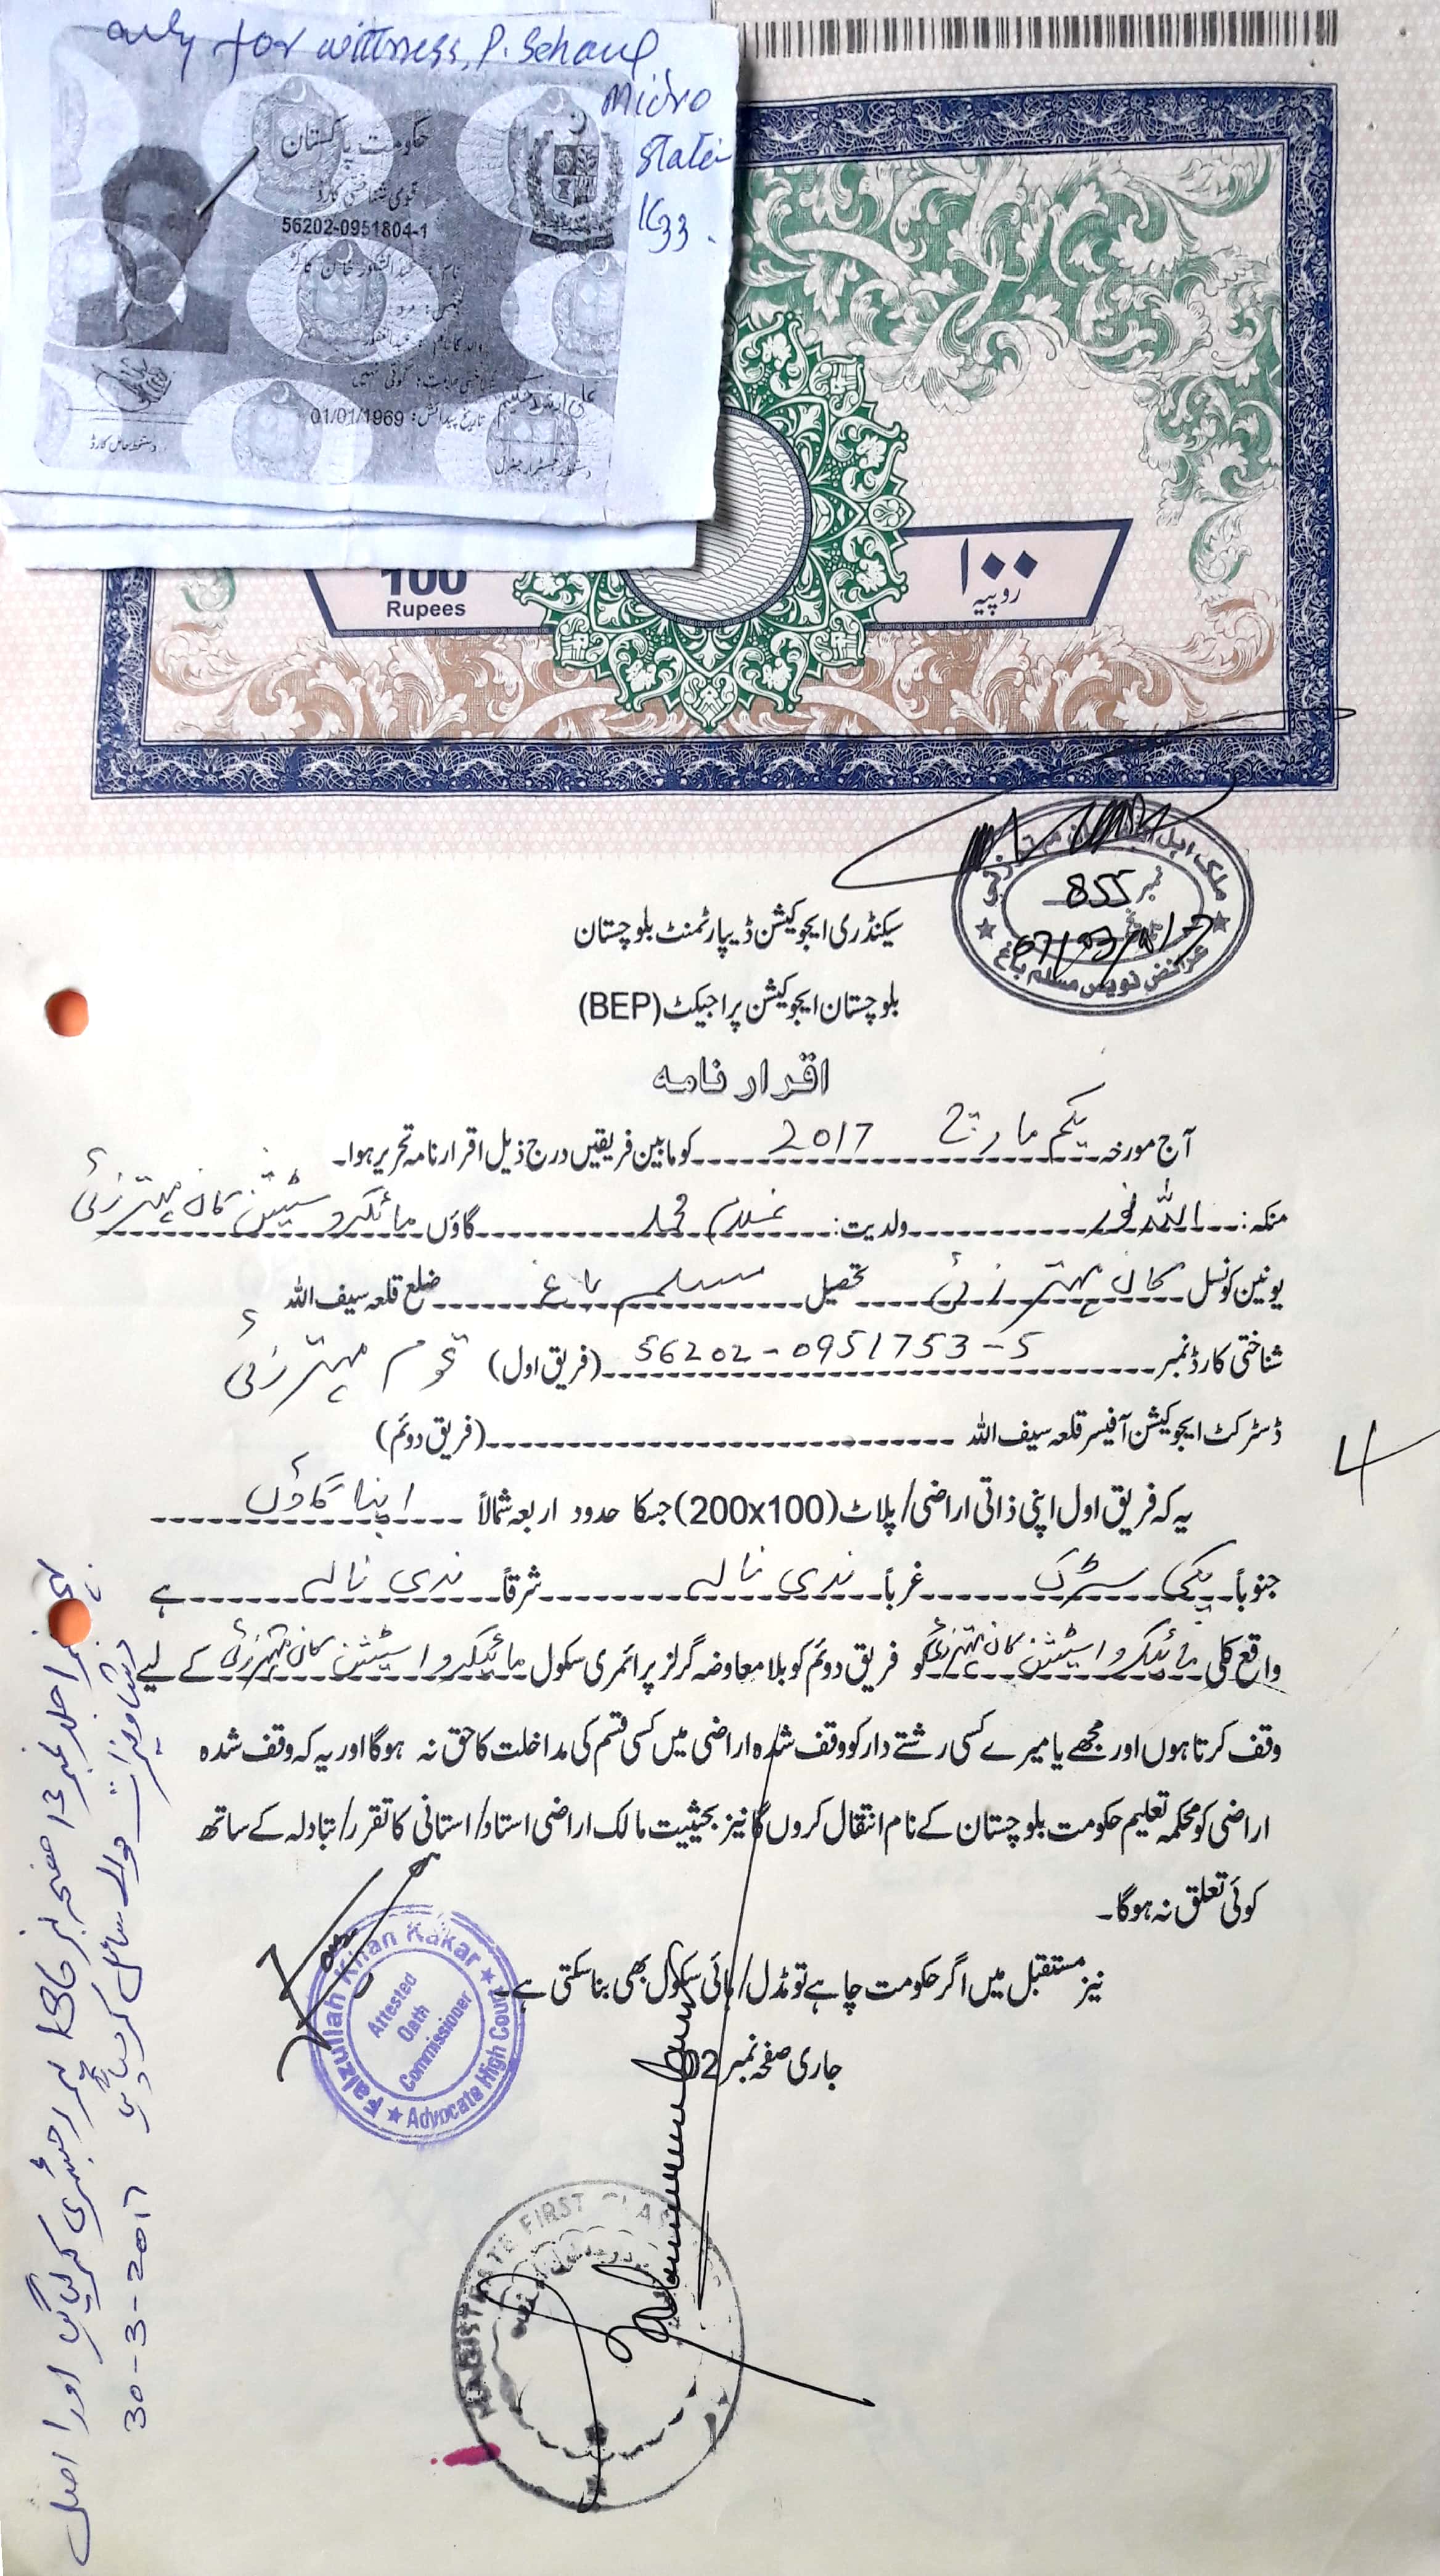 only for wittness, P. School
Micro
State
K33.
حکومت پاکستان
قومی شناختی کارڈ
56202-0951804-1
نام: عبدالشکور خان کاکڑ
جنس: مرد
والد کا نام: عبدالغفور
شناختی علامت: کوئی نہیں
تاریخ پیدائش: 01/01/1969
دستخط حامل کارڈ
دستخط رجسٹرار جنرل
100
Rupees
۱۰۰
روپیہ
نمبر 855
07/03/2017
عرائض نویس مسلم باغ
سیکنڈری ایجوکیشن ڈیپارٹمنٹ بلوچستان
بلوچستان ایجوکیشن پراجیکٹ (BEP)
اقرار نامہ
آج مورخہ یکم مارچ 2017 کو مابین فریقین درج ذیل اقرار نامہ تحریر ہوا۔
منکہ: اللہ نور ولدیت: غلام محمد گاؤں مائیکرو سٹیشن کان مہترزئی
یونین کونسل کان مہترزئی تحصیل مسلم باغ ضلع قلعہ سیف اللہ
شناختی کارڈ نمبر 56202-0951753-5 (فریق اول) قوم مہترزئی
ڈسٹرکٹ ایجوکیشن آفیسر قلعہ سیف اللہ (فریق دوئم)
4
یہ کہ فریق اول اپنی ذاتی اراضی/پلاٹ (200x100) جسکا حدود اربعہ شمالاً اپنا گاؤں
جنوباً پکی سڑک غرباً ندی نالہ شرقاً ندی نالہ ہے
واقع کلی مائیکرو اسٹیشن کان مہترزئی کو فریق دوئم کو بلا معاوضہ گرلز پرائمری سکول مائیکرو اسٹیشن کان مہترزئی کے لیے
وقف کرتا ہوں اور مجھے یا میرے کسی رشتے دار کو وقف شدہ اراضی میں کسی قسم کی مداخلت کا حق نہ ہوگا اور یہ کہ وقف شدہ
اراضی کو محکمہ تعلیم حکومت بلوچستان کے نام انتقال کروں گا نیز بحیثیت مالک اراضی استاد/استانی کا تقرر/تبادلہ کے ساتھ
کوئی تعلق نہ ہوگا۔
نیز مستقبل میں اگر حکومت چاہے تو مڈل/ہائی سکول بھی بنا سکتی ہے۔
جاری صفحہ نمبر 02
Faizullah Khan Kakar
Attested
Oath
Commissioner
Advocate High Court
MAGISTRATE FIRST CLASS
جلد نمبر 13 صفحہ نمبر پر رجسٹری کر لیا گیا اور اصل
دستاویزات حوالے سائل کر دیا گیا 30-3-2017